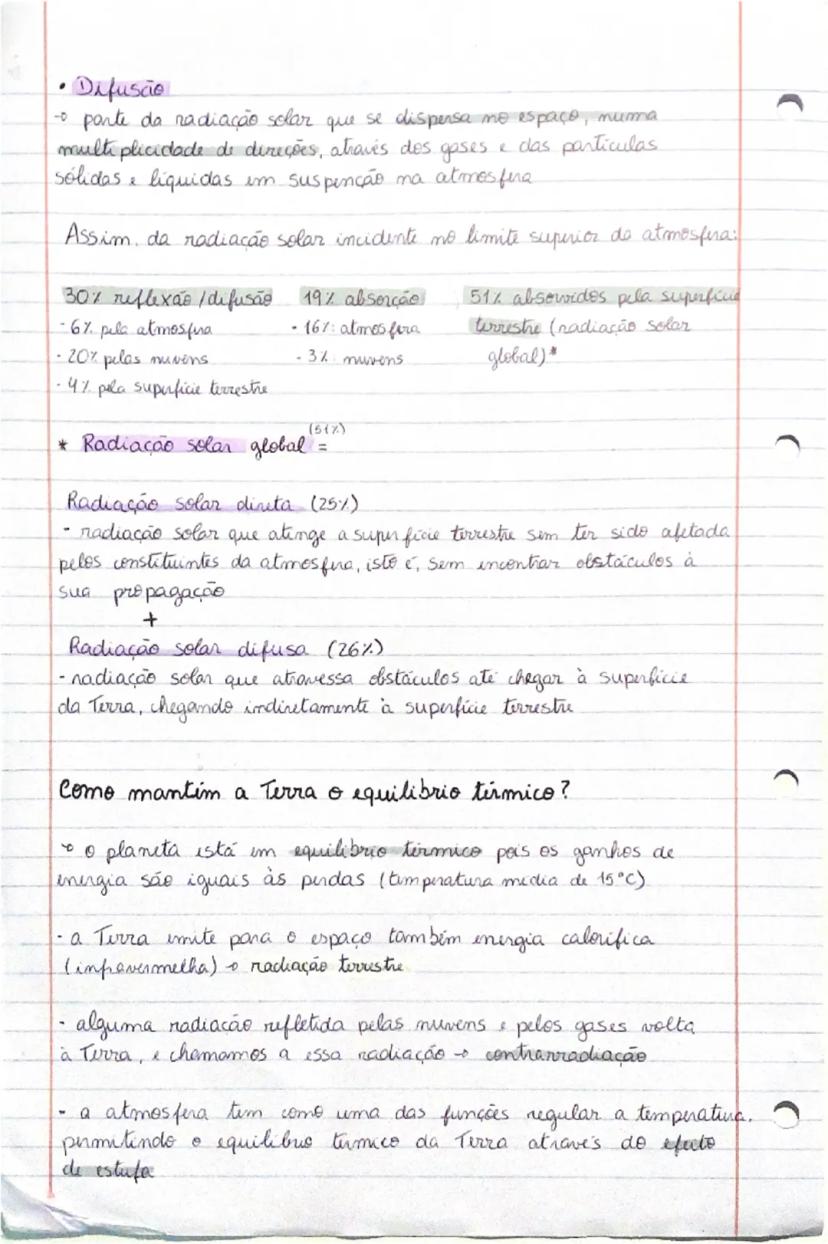 • Difusão
→ parte da radiação solar que se dispersa no espaço, numa
multiplicidade de direções, através dos gases e das partículas
sólidas e líquidas em suspenção na atmosfera
Assim, da radiação solar incidente no limite superior da atmosfera:
30% reflexão/difusão 19% absorção 51% absorvidos pela superfície
- 6% pela atmosfera - 16%: atmosfera terrestre (radiação solar
- 20% pelas nuvens - 3% nuvens global)*
- 4% pela superfície terrestre
(51%)
* Radiação solar global =
Radiação solar direta (25%)
- radiação solar que atinge a superfície terrestre sem ter sido afetada
pelos constituintes da atmosfera, isto é, sem encontrar obstáculos à
sua propagação
+
Radiação solar difusa (26%)
- radiação solar que atravessa obstáculos até chegar à superfície
da Terra, chegando indiretamente à superfície terrestre
Como mantém a Terra o equilíbrio térmico?
→ o planeta está em equilíbrio térmico pois os ganhos de
energia são iguais às perdas (temperatura média de 15°C)
- a Terra emite para o espaço também energia calorífica
(infravermelha) → radiação terrestre
- alguma radiação refletida pelas nuvens e pelos gases volta
à Terra, e chamamos a essa radiação → contrarradiação
- a atmosfera tem como uma das funções regular a temperatura,
permitindo o equilíbrio térmico da Terra através do efeito
de estufa